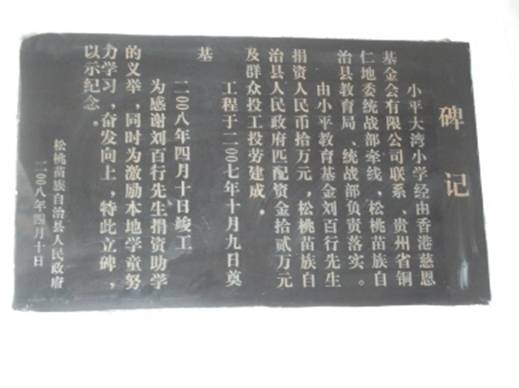 碑记
小平大湾小学经由香港慈恩
基金会有限公司联系、贵州省铜
仁地委统战部牵线，松桃苗族自
治县教育局、统战部负责落实。
由小平教育基金刘百行先生
捐资人民币拾万元，松桃苗族自
治县人民政府匹配资金拾贰万元
及群众投工投劳建成。
工程于二〇〇七年十月九日奠
基
二〇〇八年四月十日竣工
为感谢刘百行先生捐资助学
的义举，同时为激励本地学童努
力学习，奋发向上，特此立碑，
以示纪念。
松桃苗族自治县人民政府
二〇〇八年四月十日